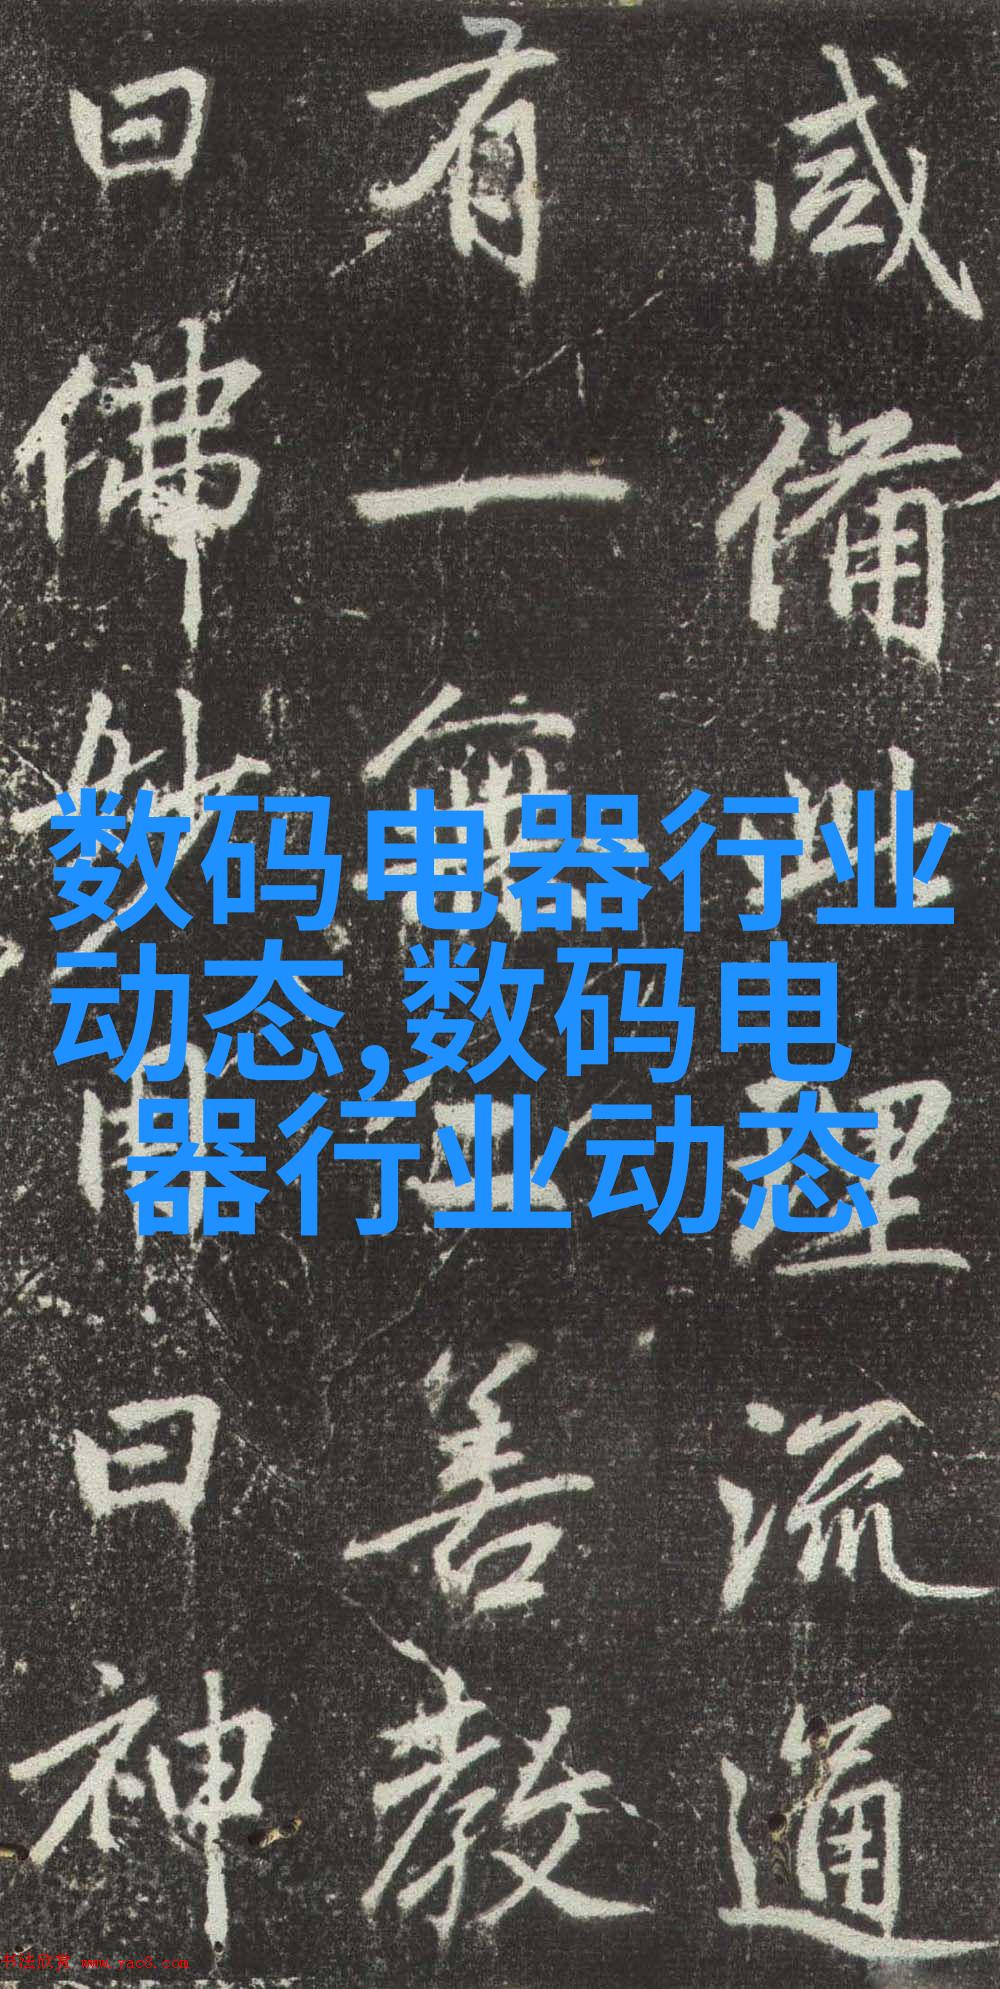 咸備此理流通
有一善教
曰佛妙用曰神
数码电器行业
动态,数码电
器行业动态
书法欣赏 www.yac8.com